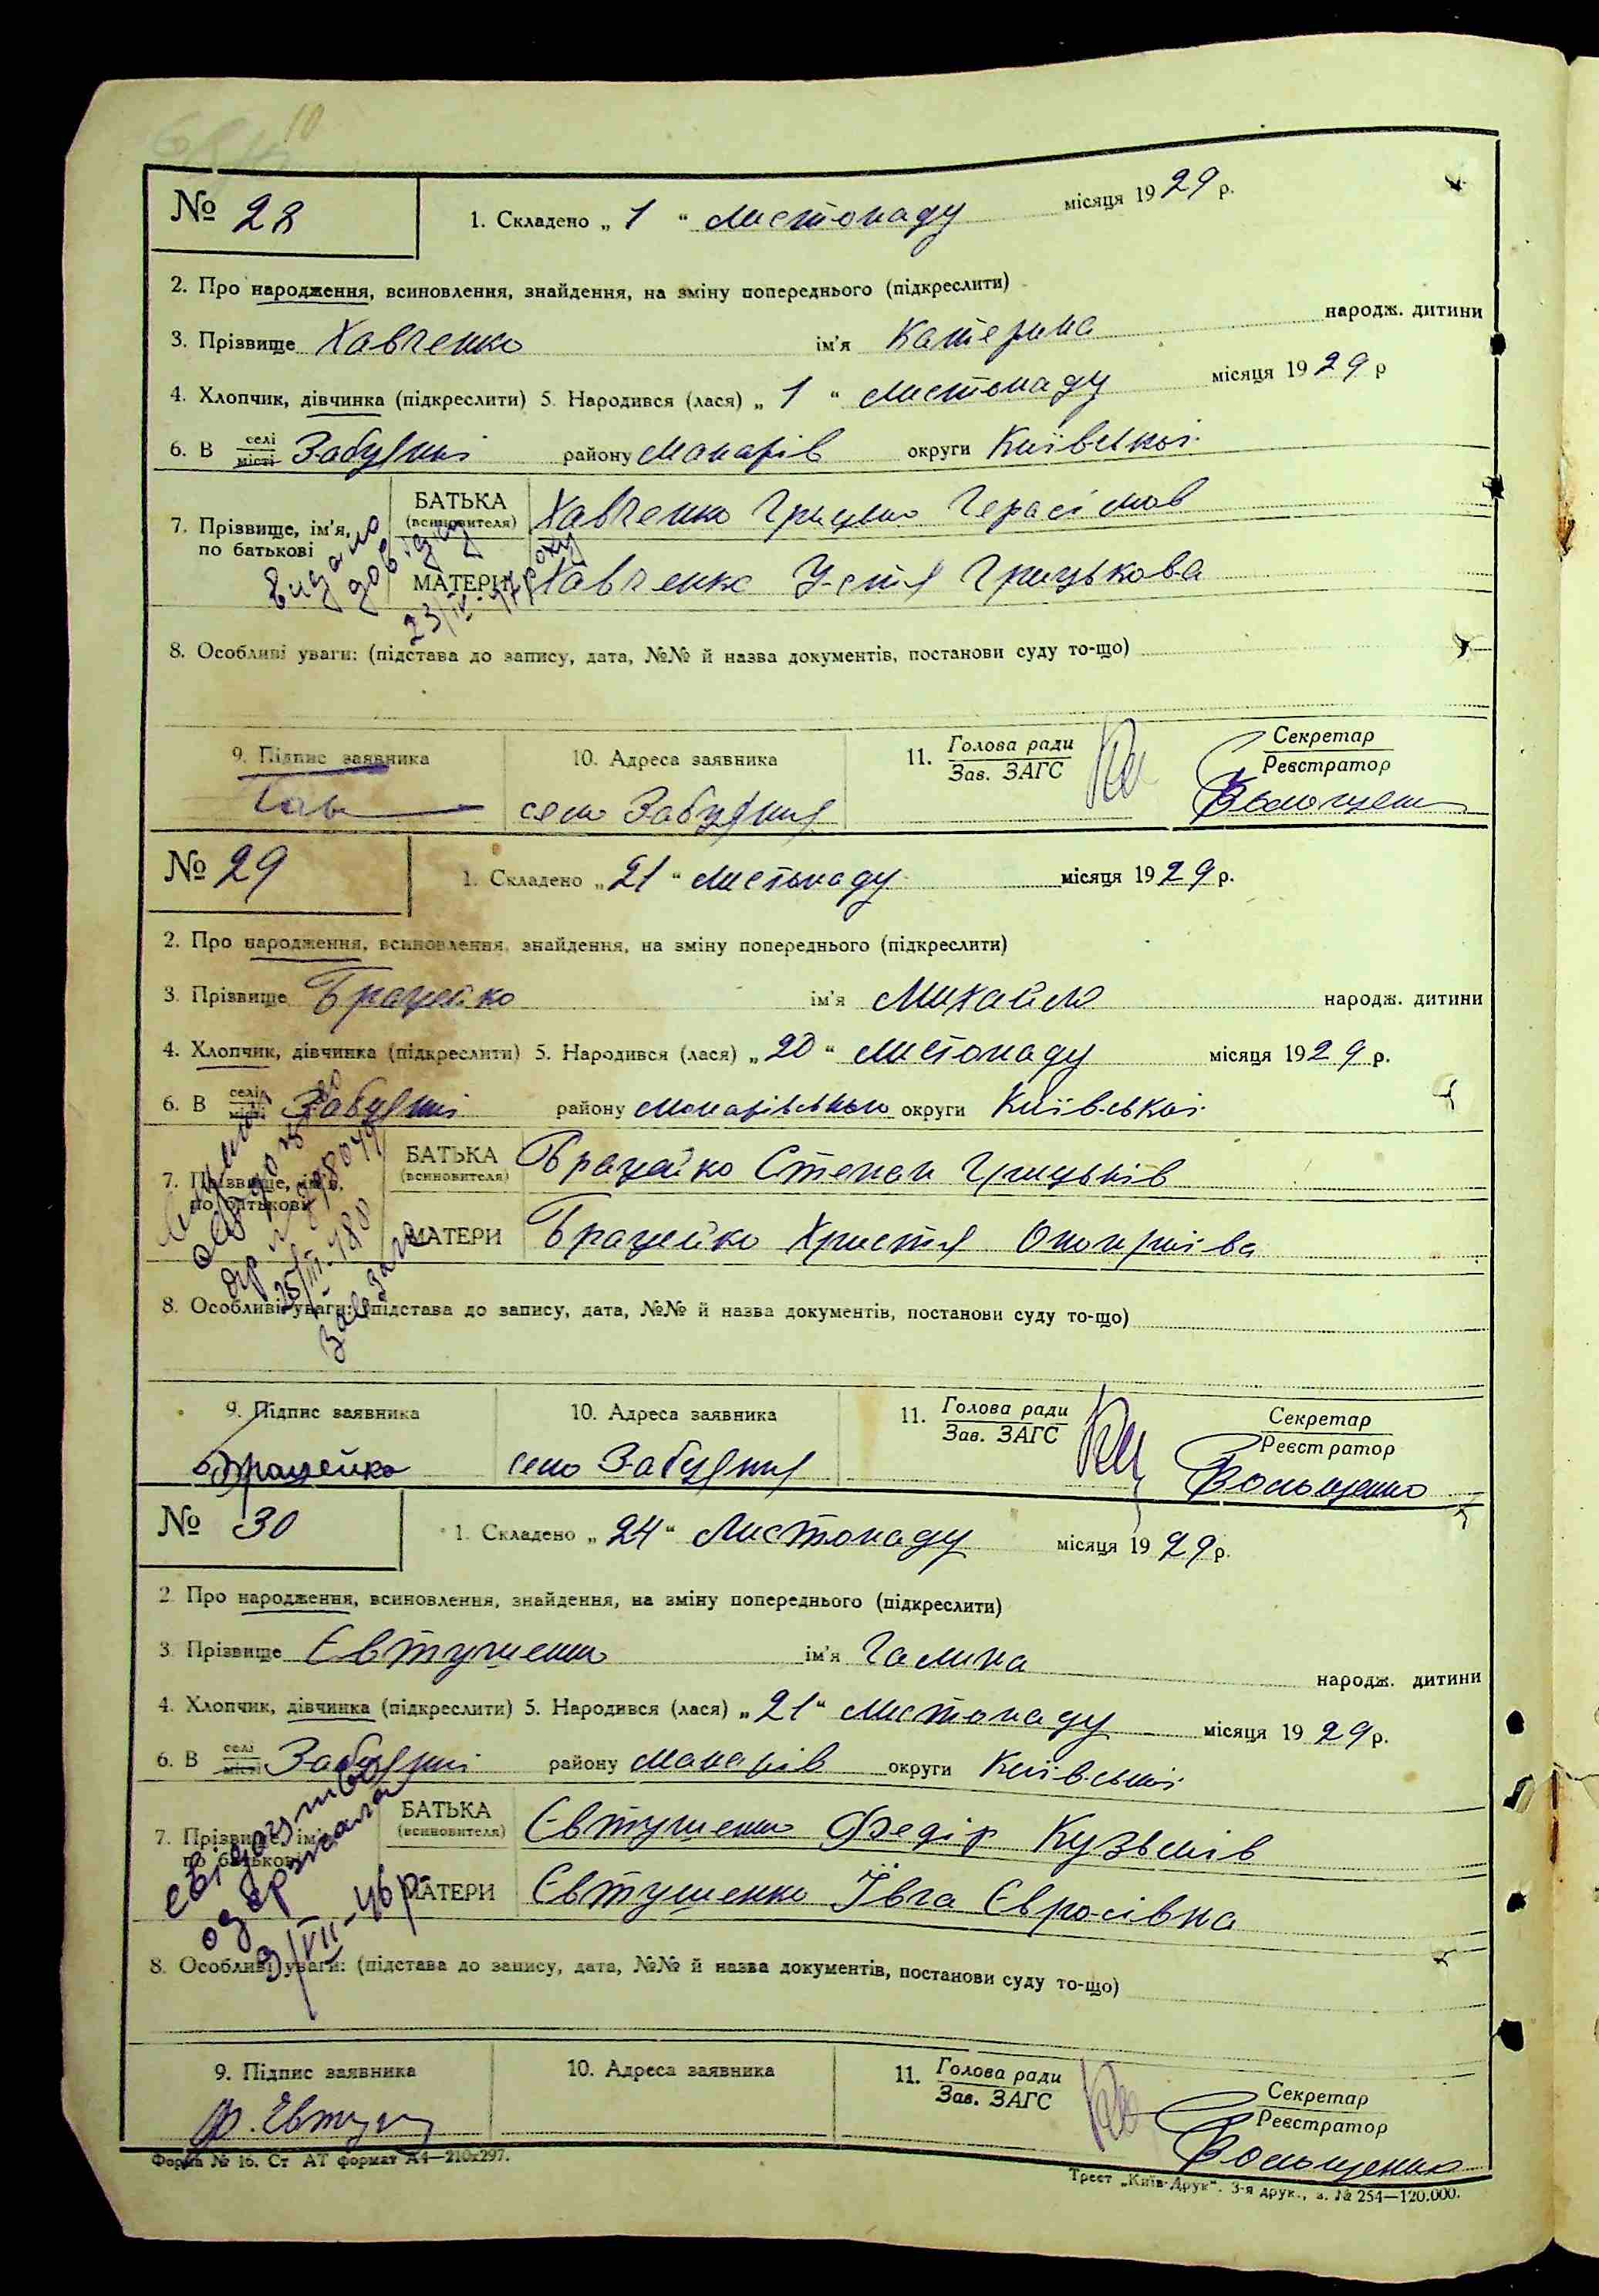 10
№ 28
1. Складено „ 1 “ листопаду місяця 1929 р.
2. Про народження, всиновлення, знайдення, на зміну попереднього (підкреслити)
3. Прізвище Хавченко ім'я Катерина народж. дитини
4. Хлопчик, дівчинка (підкреслити) 5. Народився (лася) „ 1 “ листопаду місяця 1929 р
6. В селі місті Забуяні району Макарів округи Київської
7. Прізвище, ім'я, по батькові
БАТЬКА (всиновителя) Хавченко Грицько Герасімов
МАТЕРИ Хавченко Устя Грицькова
Видано
довідку
23/IV-47 року
8. Особливі уваги: (підстава до запису, дата, №№ й назва документів, постанови суду то-що)
9. Підпис заявника
10. Адреса заявника
11. Голова ради
Зав. ЗАГС
Секретар
Реєстратор
Хав
село Забуяння
№ 29
1. Складено „ 21 “ листопаду місяця 1929 р.
2. Про народження, всиновлення, знайдення, на зміну попереднього (підкреслити)
3. Прізвище Брацейко ім'я Михайло народж. дитини
4. Хлопчик, дівчинка (підкреслити) 5. Народився (лася) „ 20 “ листопаду місяця 1929 р.
6. В селі місті Забуяні району Макарівського округи Київської
7. Прізвище, ім'я, по батькові
БАТЬКА (всиновителя) Брацейко Степан Грицьків
МАТЕРИ Брацейко Христя Оноприєва
25/III-
8. Особливі уваги: (підстава до запису, дата, №№ й назва документів, постанови суду то-що)
9. Підпис заявника
10. Адреса заявника
11. Голова ради
Зав. ЗАГС
Секретар
Реєстратор
Брацейко
село Забуяння
Волощенко
№ 30
1. Складено „ 24 “ Листопаду місяця 1929 р.
2. Про народження, всиновлення, знайдення, на зміну попереднього (підкреслити)
3. Прізвище Євтушенко ім'я Галина народж. дитини
4. Хлопчик, дівчинка (підкреслити) 5. Народився (лася) „ 21 “ листопаду місяця 1929 р.
6. В селі місті Забуяні району Макарів округи Київської
7. Прізвище, ім'я, по батькові
БАТЬКА (всиновителя) Євтушенко Федір Кузьмів
МАТЕРИ Євтушенко Ївга Євросівна
свідоцтво
одержала
9/VII-46 р.
8. Особливі уваги: (підстава до запису, дата, №№ й назва документів, постанови суду то-що)
9. Підпис заявника
10. Адреса заявника
11. Голова ради
Зав. ЗАГС
Секретар
Реєстратор
Ф. Євтуш
Волощенко
Форма № 16. Ст АТ формат А4—210x297.
Трест „Київ-Друк“. 3-я друк., з. № 254—120.000.